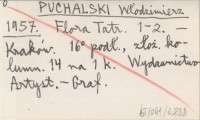 PUCHALSKI Włodzimierz
1957. Flora Tatr. 1-2. –
Kraków. 16° podł., złoż. ko-
lumn. 14 na 1 k. Wydawnictwo
Artyst. – Graf.